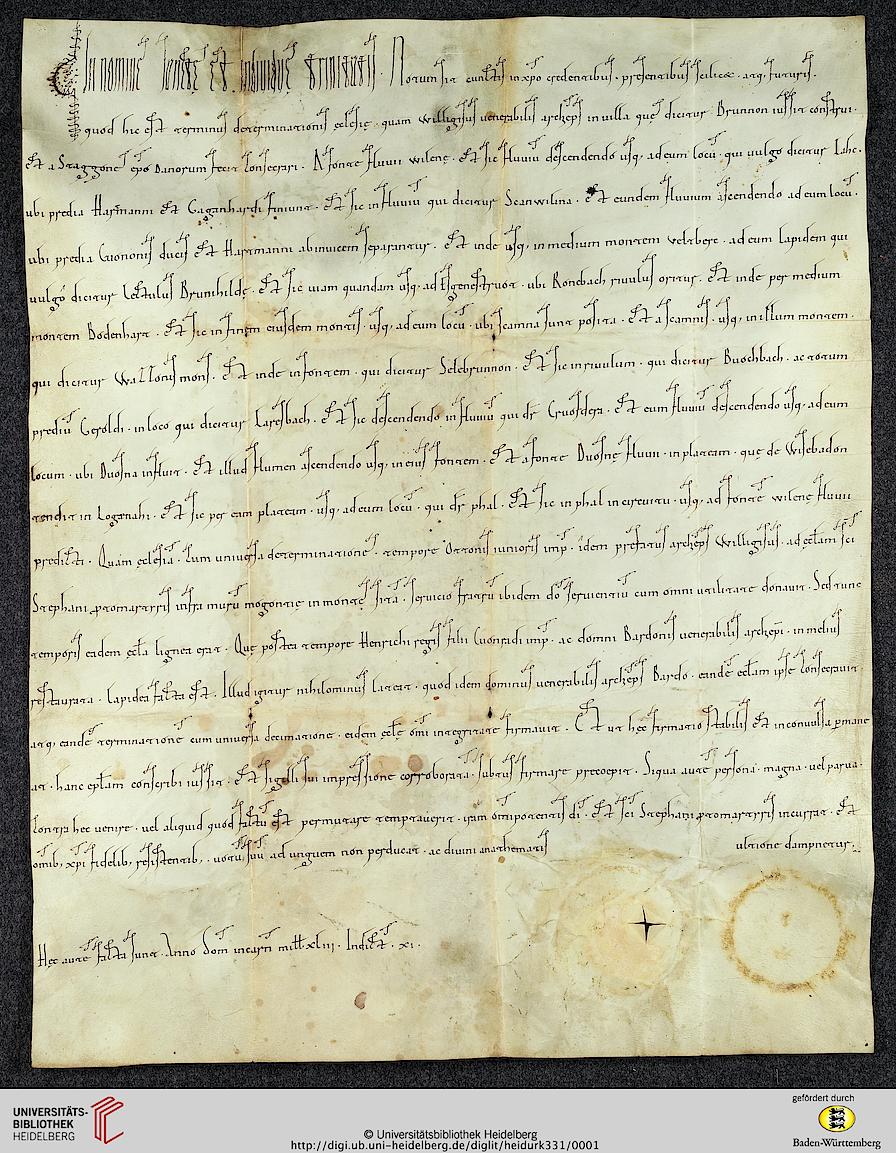 In nomine sanctę et individuę trinitatis. Notum sit cunctis in xpo credentibus. presentibus scilicet. atq, futuris.
quod hic est terminus determinationis ęcclesię. quam willigisus venerabilis archieps in villa quę dicitur Brunnon iussit construi.
Et a Staggone epo Danorum fecit consecrari. A fonte fluvii wilene. Et sic fluviu descendendo usq, ad eum locu. qui vulgo dicitur Lahc.
ubi predia Hartmanni et Gaganhardi finiunt. Et sic in fluviu qui dicitur Scanwilina. Et eundem fluvium ascendendo ad eum locu.
ubi predia Cuononis ducis et Hartmanni abinvicem separantur. Et inde usq, in medium montem veltbere. ad eum lapidem qui
vulgo dicitur Lectulus Brunihilde. Et sic viam quandam usq, ad Eigenestruot. ubi Ronebach rivulus oritur. Et inde per medium
montem Bodenhart. Et sic in finem eiusdem montis. usq, ad eum locu. ubi scamna sunt posita. Et a scamnis. usq, in illum montem.
qui dicitur Wallocus mons. Et inde in fontem. qui dicitur Selebrunnon. Et sic in rivulum. qui dicitur Buochbach. ac totum
prediu Geroldi. in loco qui dicitur Laresbach. Et sic descendendo in fluviu qui dr Cruofdera. Et eum fluviu descendendo usq, ad eum
locum. ubi Duosna influit. Et illud flumen ascendendo usq, in eius fontem. Et a fonte Duosnę fluvii. in plateam. quę de Wisebadon
tendit in Logenahi. Et sic per eam plateam. usq, ad eum locu. qui dr phal. Et sic in phal in circuitu. usq, ad fonte wilene fluvii
predicti. Quam ęcclesia. cum universa determinatione. tempore Ottonis iunioris imp. idem prefatus archieps Willigisus. ad ęcclam sci
Stephani protomartiris infra muru mogontię in monte sita. servicio fratru ibidem do servientiu cum omni utilitate donavit. Sed tunc
temporis eadem ęccla lignea erat. Quę postea tempore Henrichi regis filii Cuonradi imp. ac domni Bardonis venerabilis archiepi. in melius
restaurata. lapidea facta est. Illud igitur nihilominus lateat. quod idem dominus venerabilis archieps Bardo. eande ecclam ipse consecravit
atq, eande terminatione cum universa decimatione. eidem ęccłę omi integritate firmavit. Et ut hec firmatio stabilis et inconvulsa permane
at. hanc epłam conscribi iussit. Et sigilli sui impressione corroborata. subtus firmare precoepit. Siqua aute persona. magna. vel parva.
contra hec venire. vel aliquid quod factu est permutare temptaverit. iram omipotentis di. Et sci Stephani protomartiris incurrat. Et
omib, xpi fidelib, resistentib,. votu suu ad unguem non perducat. ac divini anathematis ultione dampnetur.
Hęc aute facta sunt. Anno dom incarn mill. xliii. Indict. xi.
UNIVERSITÄTS-
BIBLIOTHEK
HEIDELBERG
© Universitätsbibliothek Heidelberg
http://digi.ub.uni-heidelberg.de/diglit/heidurk331/0001
gefördert durch
Baden-Württemberg